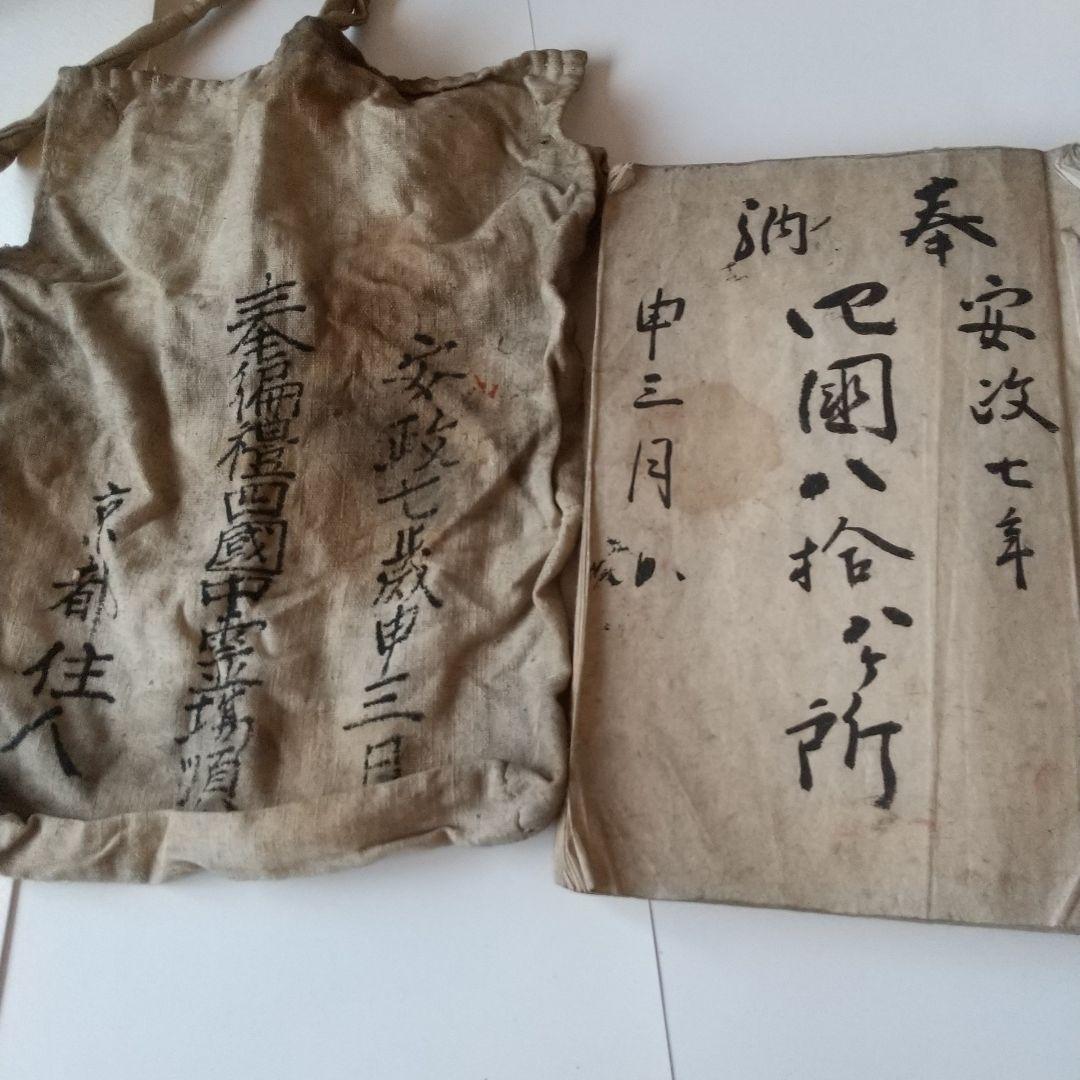 安政七歳申三月
奉順禮四國中霊場順
京都住人
奉納
安政七年
四國八拾八ヶ所
申三月